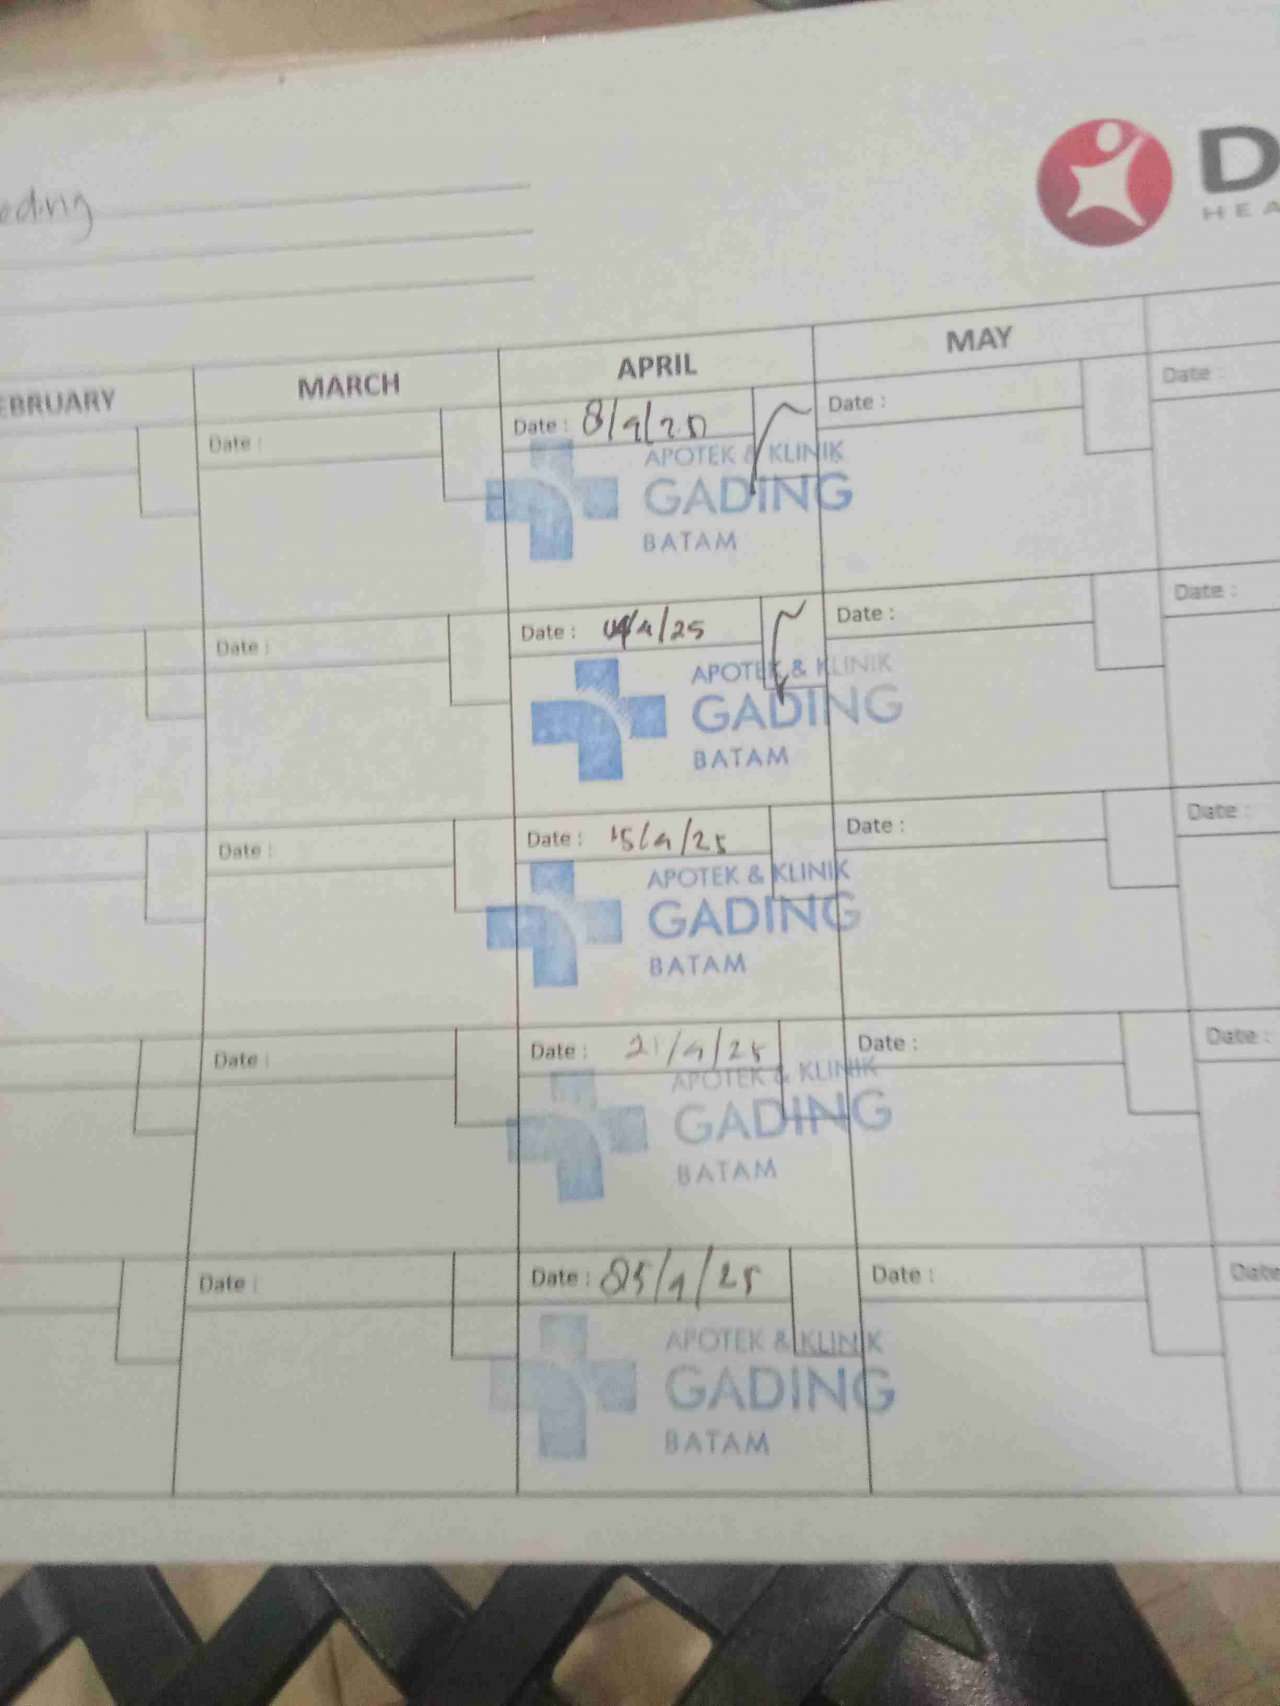 eding
D
HEA
EBRUARY MARCH APRIL MAY
Date : Date : 8/4/25 Date : Date :
APOTEK & KLINIK
GADING
BATAM
Date : Date : /4/25 Date : Date :
APOTEK & KLINIK
GADING
BATAM
Date : Date : 15/4/25 Date : Date :
APOTEK & KLINIK
GADING
BATAM
Date : Date : 21/4/25 Date : Date :
APOTEK & KLINIK
GADING
BATAM
Date : Date : 25/4/25 Date : Date
APOTEK & KLINIK
GADING
BATAM